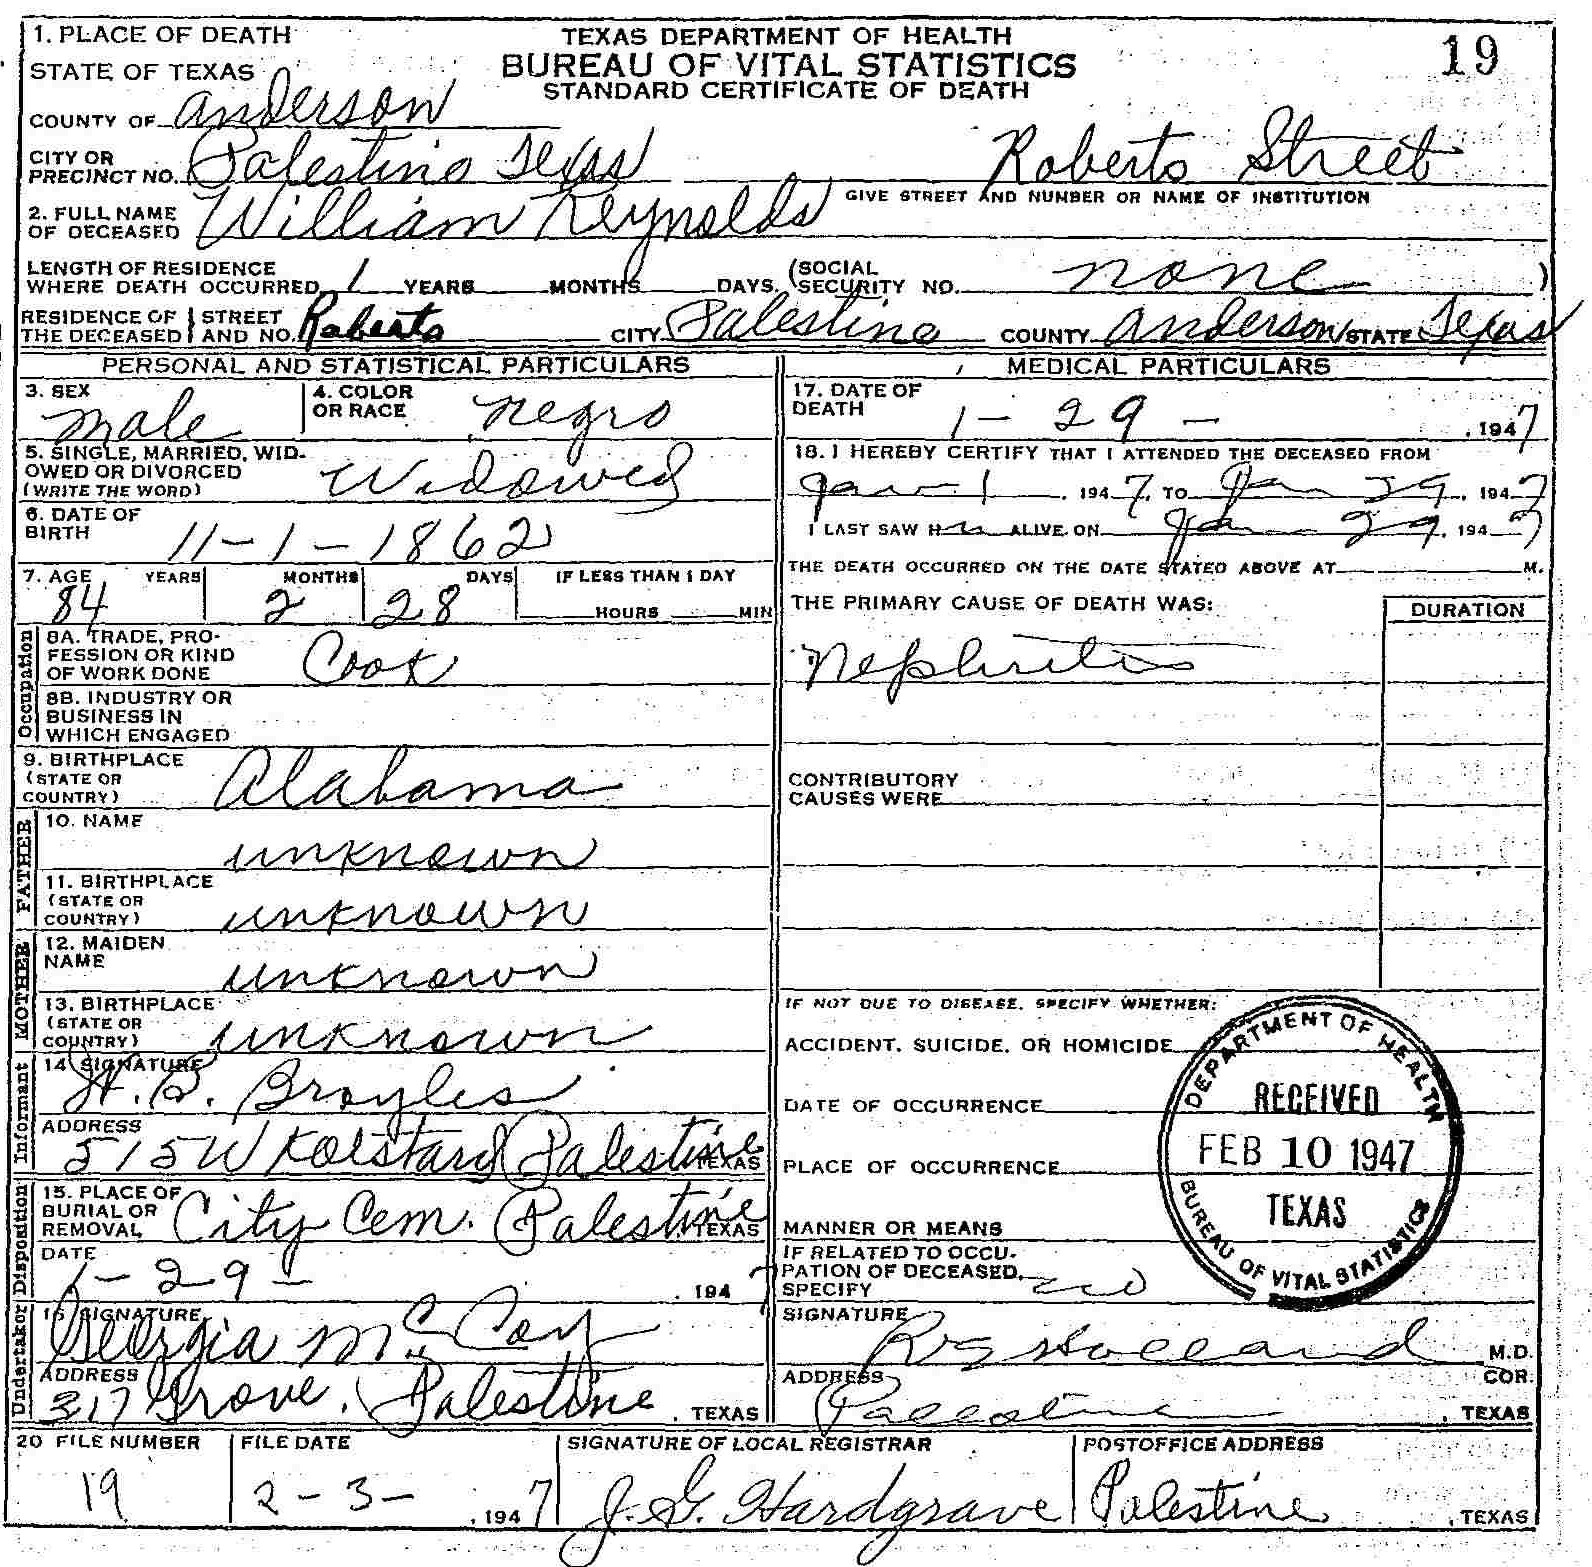 1. PLACE OF DEATH
STATE OF TEXAS
TEXAS DEPARTMENT OF HEALTH
BUREAU OF VITAL STATISTICS
STANDARD CERTIFICATE OF DEATH
19
COUNTY OF Anderson
CITY OR PRECINCT NO. Palestine Texas Roberts Street
GIVE STREET AND NUMBER OR NAME OF INSTITUTION
2. FULL NAME OF DECEASED William Reynolds
LENGTH OF RESIDENCE WHERE DEATH OCCURRED 1 YEARS MONTHS DAYS. (SOCIAL SECURITY NO. none )
RESIDENCE OF THE DECEASED STREET AND NO. Roberts CITY Palestine COUNTY Anderson STATE Texas
PERSONAL AND STATISTICAL PARTICULARS
3. SEX male
4. COLOR OR RACE negro
5. SINGLE, MARRIED, WIDOWED OR DIVORCED (WRITE THE WORD) Widowed
6. DATE OF BIRTH 11-1-1862
7. AGE YEARS MONTHS DAYS IF LESS THAN 1 DAY
84 2 28 HOURS MIN
Occupation
8A. TRADE, PROFESSION OR KIND OF WORK DONE Cook
8B. INDUSTRY OR BUSINESS IN WHICH ENGAGED
9. BIRTHPLACE (STATE OR COUNTRY) Alabama
FATHER
10. NAME unknown
11. BIRTHPLACE (STATE OR COUNTRY) unknown
MOTHER
12. MAIDEN NAME unknown
13. BIRTHPLACE (STATE OR COUNTRY) unknown
Informant
14 SIGNATURE H. B. Broyles
ADDRESS 515 W Kolstard Palestine TEXAS
Disposition
15. PLACE OF BURIAL OR REMOVAL City Cem. Palestine TEXAS
DATE 1-29- . 1947
Undertaker
16 SIGNATURE Georgia McCoy
ADDRESS 317 Grove, Palestine , TEXAS
MEDICAL PARTICULARS
17. DATE OF DEATH 1-29- , 1947
18. I HEREBY CERTIFY THAT I ATTENDED THE DECEASED FROM
Jan-1 , 1947, TO Jan 29, 1947
I LAST SAW H ALIVE ON Jan 29, 1947
THE DEATH OCCURRED ON THE DATE STATED ABOVE AT M.
THE PRIMARY CAUSE OF DEATH WAS: DURATION
Nephritis
CONTRIBUTORY CAUSES WERE
IF NOT DUE TO DISEASE, SPECIFY WHETHER:
ACCIDENT, SUICIDE, OR HOMICIDE
DATE OF OCCURRENCE
PLACE OF OCCURRENCE
MANNER OR MEANS
IF RELATED TO OCCUPATION OF DECEASED, SPECIFY no
DEPARTMENT OF HEALTH
RECEIVED
FEB 10 1947
TEXAS
BUREAU OF VITAL STATISTICS
SIGNATURE Holland M.D.
COR.
ADDRESS Palestine , TEXAS
20 FILE NUMBER 19
FILE DATE 2-3- , 1947
SIGNATURE OF LOCAL REGISTRAR J. G. Hardgrave
POSTOFFICE ADDRESS Palestine , TEXAS